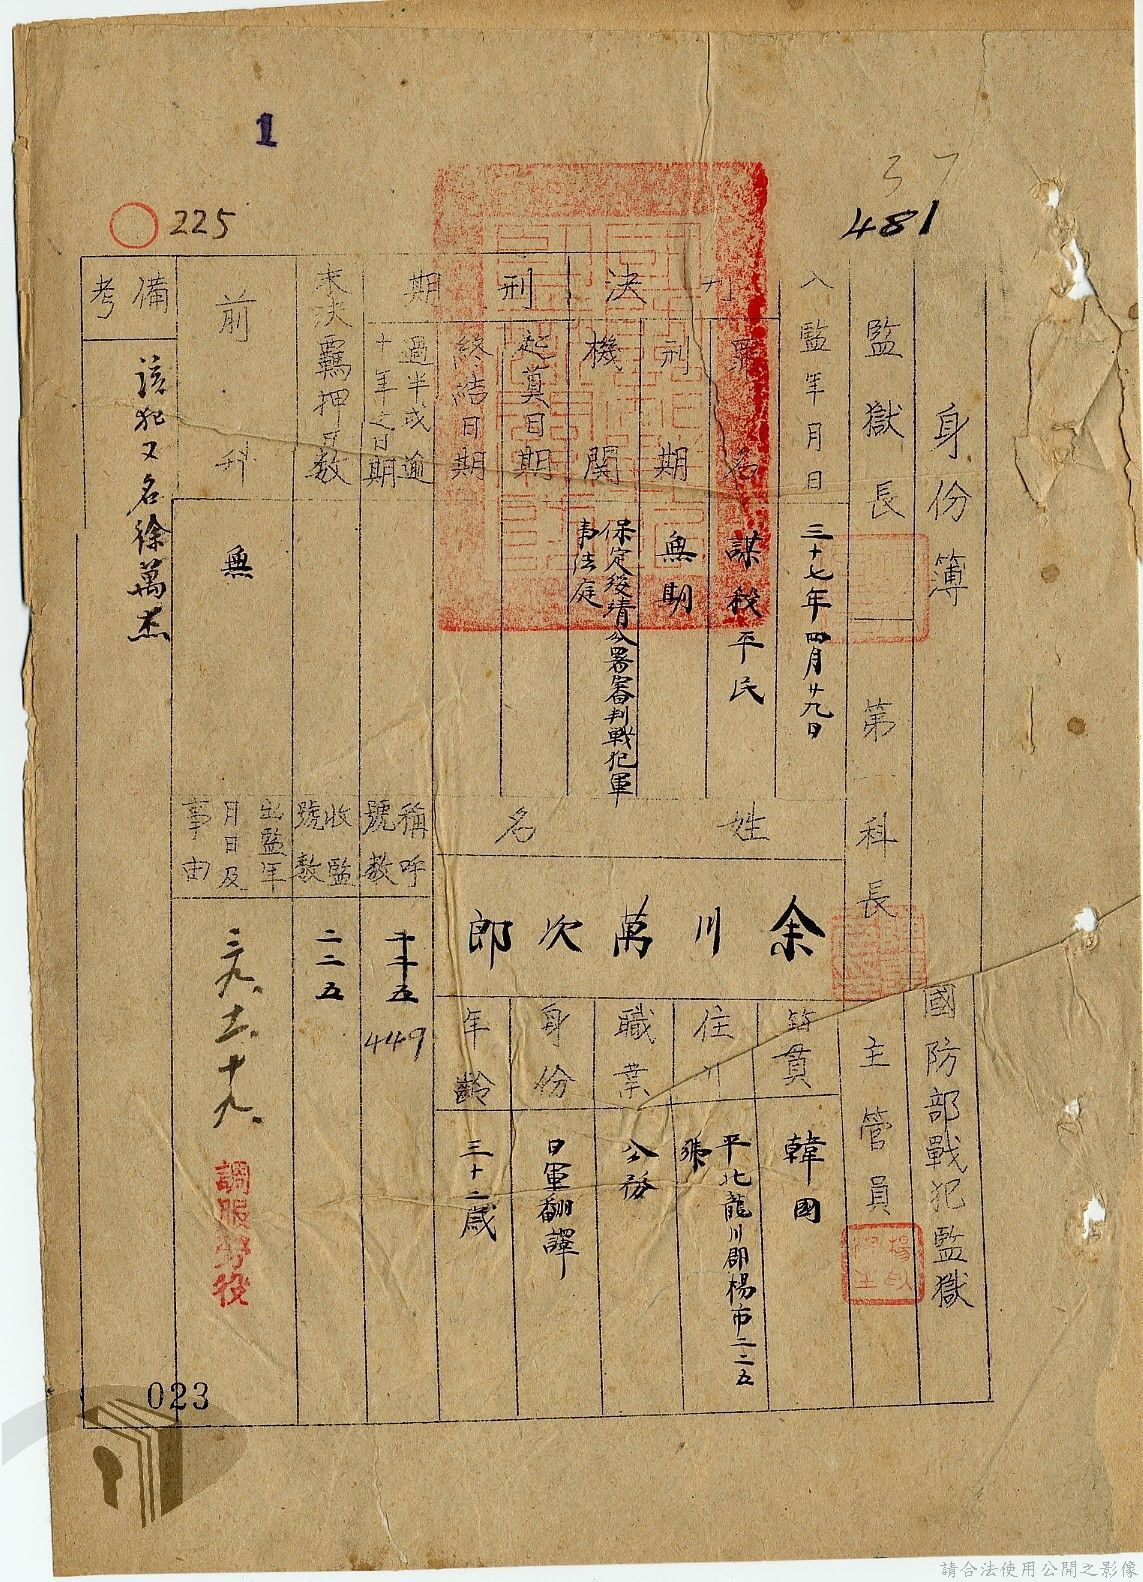 1
37
481
225
身份簿
國防部戰犯監獄
監獄長
第一科長
主管員
入監年月日
三十七年四月廿九日
判決
罪名
謀殺平民
刑期
無期
機關
保定綏靖公署審判戰犯軍
事法庭
刑期
起算日期
終結日期
過半或逾
十年之日期
未決羈押日數
前科
無
備考
該犯又名徐萬杰
姓名
余川萬次郎
籍貫
韓國
住
平北龍川郡楊市二二五
號
職業
公務
身份
日軍翻譯
年齡
三十二歲
稱呼
號數
449
收監
號數
二二五
出監年
月日及
事由
三九.十一.十九.
調服勞役
023
請合法使用公開之影像